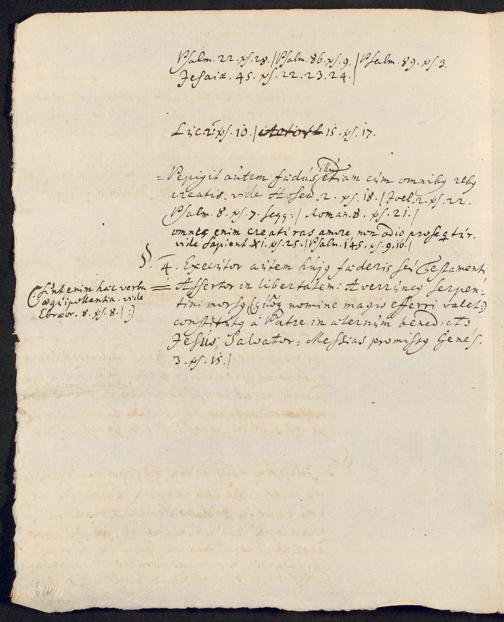 Psalm. 22. ℣s. 28. | Psalm. 86. ℣s. 9. | Psalm. 89. ℣s. 3.
Jesaiæ. 45. ℣s. 22. 23. 24. |
Luc. 2. ℣s. 10. | Actor 15. ℣s. 17.
= Pepigit autem fœdus illud etiam cum omnibꝰ rebꝰ
creatis. vide Hosea. 2. ℣s. 18. | Joel. 2. ℣s. 22.
Psalm. 8. ℣s. 7. seqq: | Roman. 8. ℣s. 21. |
omnes enim creaturas amore, non odio prosequitur.
vide Sapient XI. ℣s. 25. | Psalm. 145. ℣s. 9. 16. |
§. 4. Executor autem hujꝰ fœderis seu Testamenti
= Assertor in libertatem: Averruncꝰ serpen-
tini morsꝰ nomine magis efferri valet
constitutꝰ à Patre in æternum benedicto
Jesus, Salvator: Messias promissꝰ Genes.
3. ℣s. 15. |
(Sunt enim hæc verba
æquipollentia. vide
Ebræor. 8. ℣s. 8. | :)